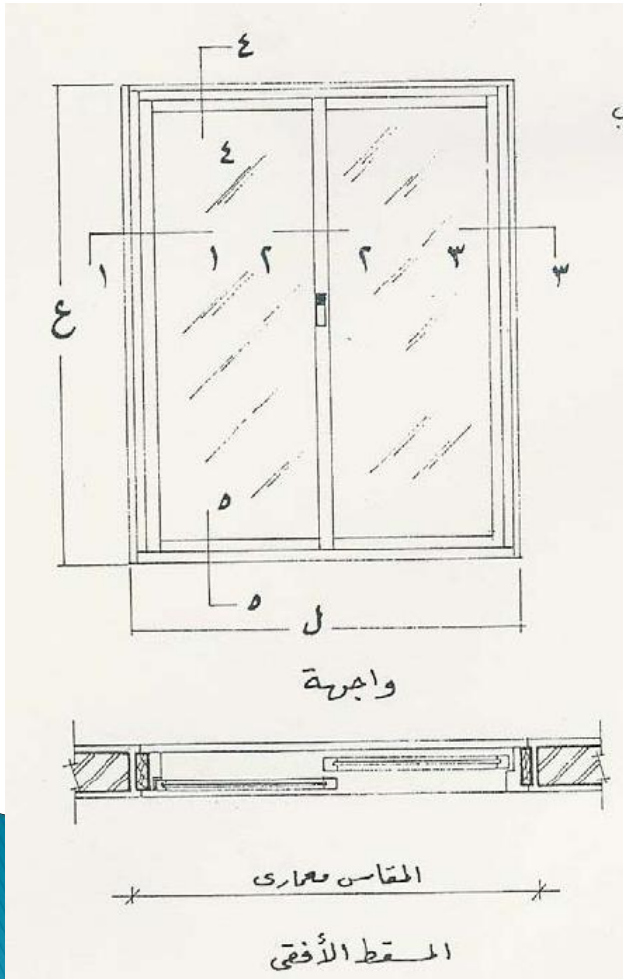 ٤
٤
ب
١ ١ ٢ ٢ ٣ ٣
ع
٥
٥
ل
واجهة
المقاس معمارى
المسقط الأفقى